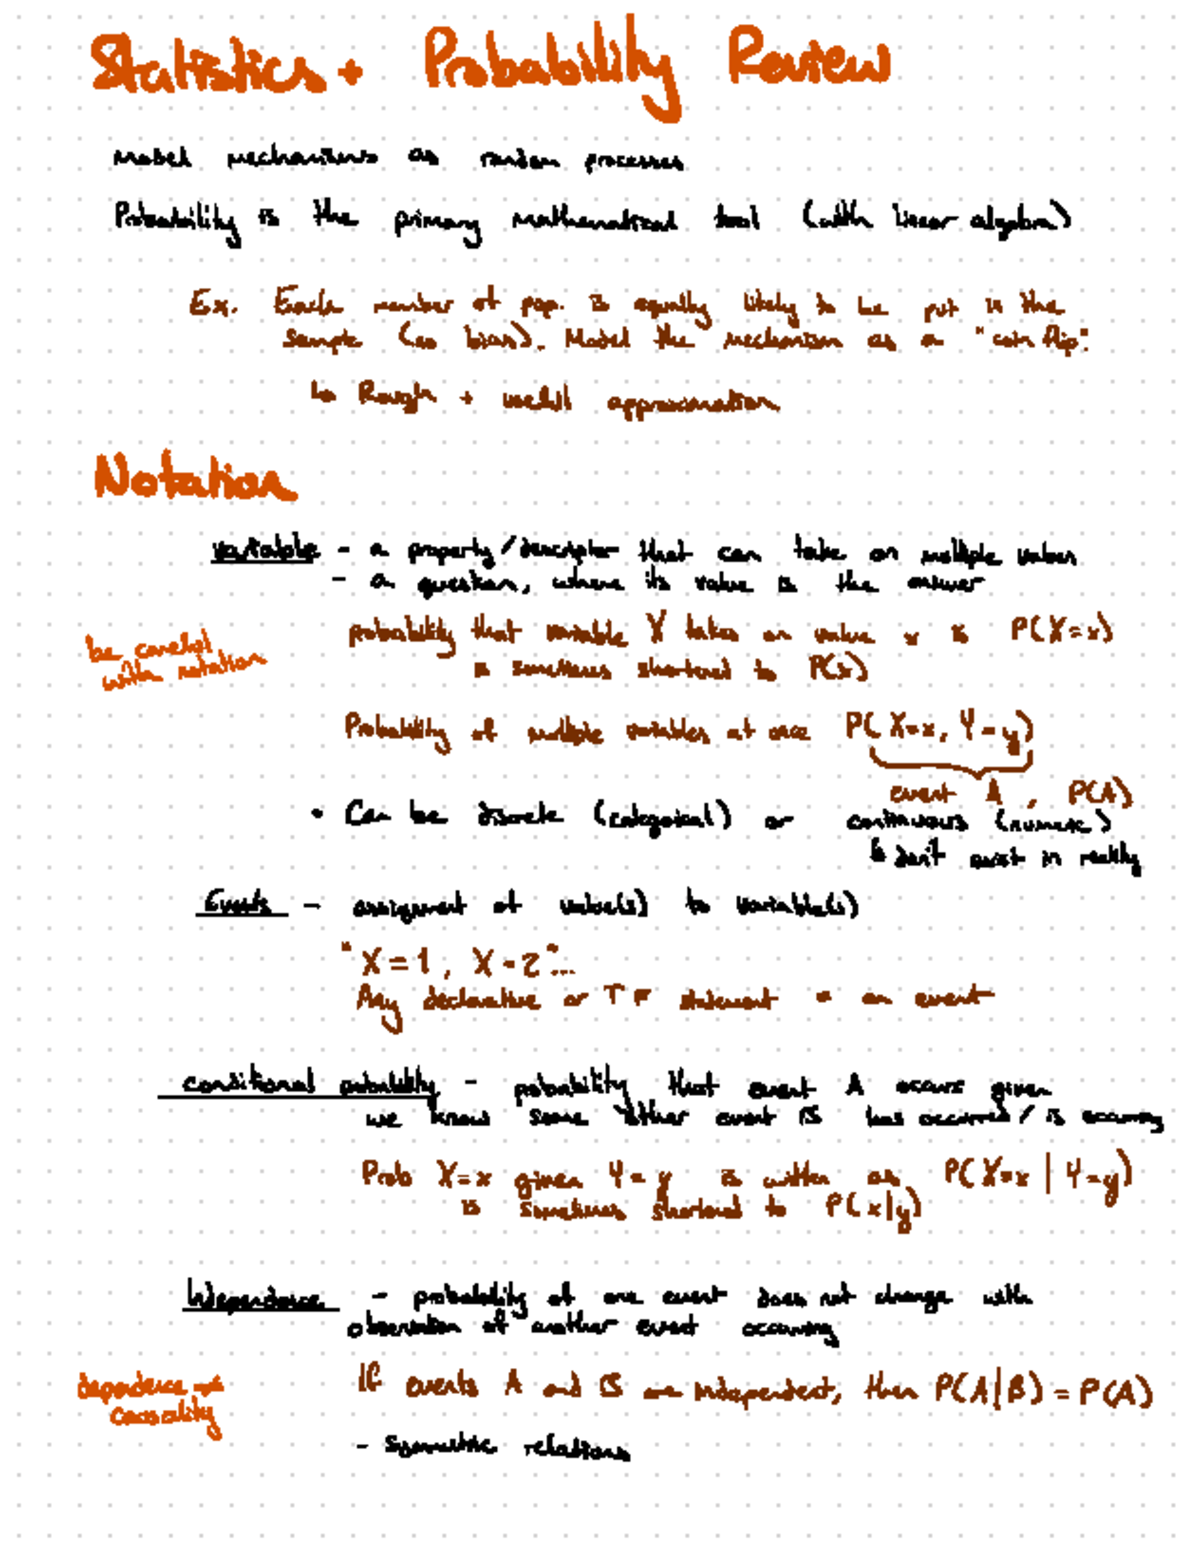 Statistics + Probability Review
Model mechanisms as random processes
Probability is the primary mathematical tool (with linear algebra)
Ex. Each member of pop. is equally likely to be put in the
sample (no bias). Model the mechanism as a "coin flip".
↳ Rough + useful approximation
Notation
variable - a property/descriptor that can take on multiple values
- a question, where its value is the answer
probability that variable X takes on value x is P(X=x)
is sometimes shortened to P(x)
be careful
with notation
Probability of multiple variables at once P(X=x, Y=y)
event A, P(A)
• Can be discrete (categorical) or continuous (numeric)
↳ don't exist in reality
Events - assignment of value(s) to variable(s)
"X=1, X=2"...
Any declarative or T F statement = an event
conditional probability - probability that event A occurs given
we know some other event B has occurred / is occuring
Prob X=x given Y=y is written as P(X=x | Y=y)
is sometimes shortened to P(x|y)
Independence - probability of one event does not change with
observation of another event occuring
If events A and B are independent, then P(A|B) = P(A)
dependence ≠
causality
- symmetric relations